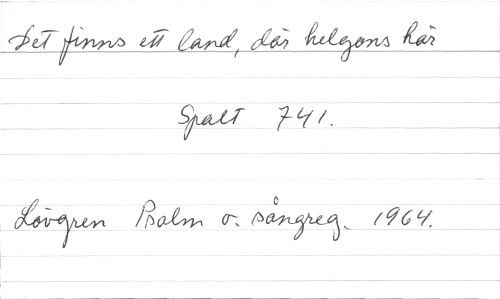 Det finns ett land, där helgons här
Spalt 741.
Lövgren Psalm o. sångreg. 1964.